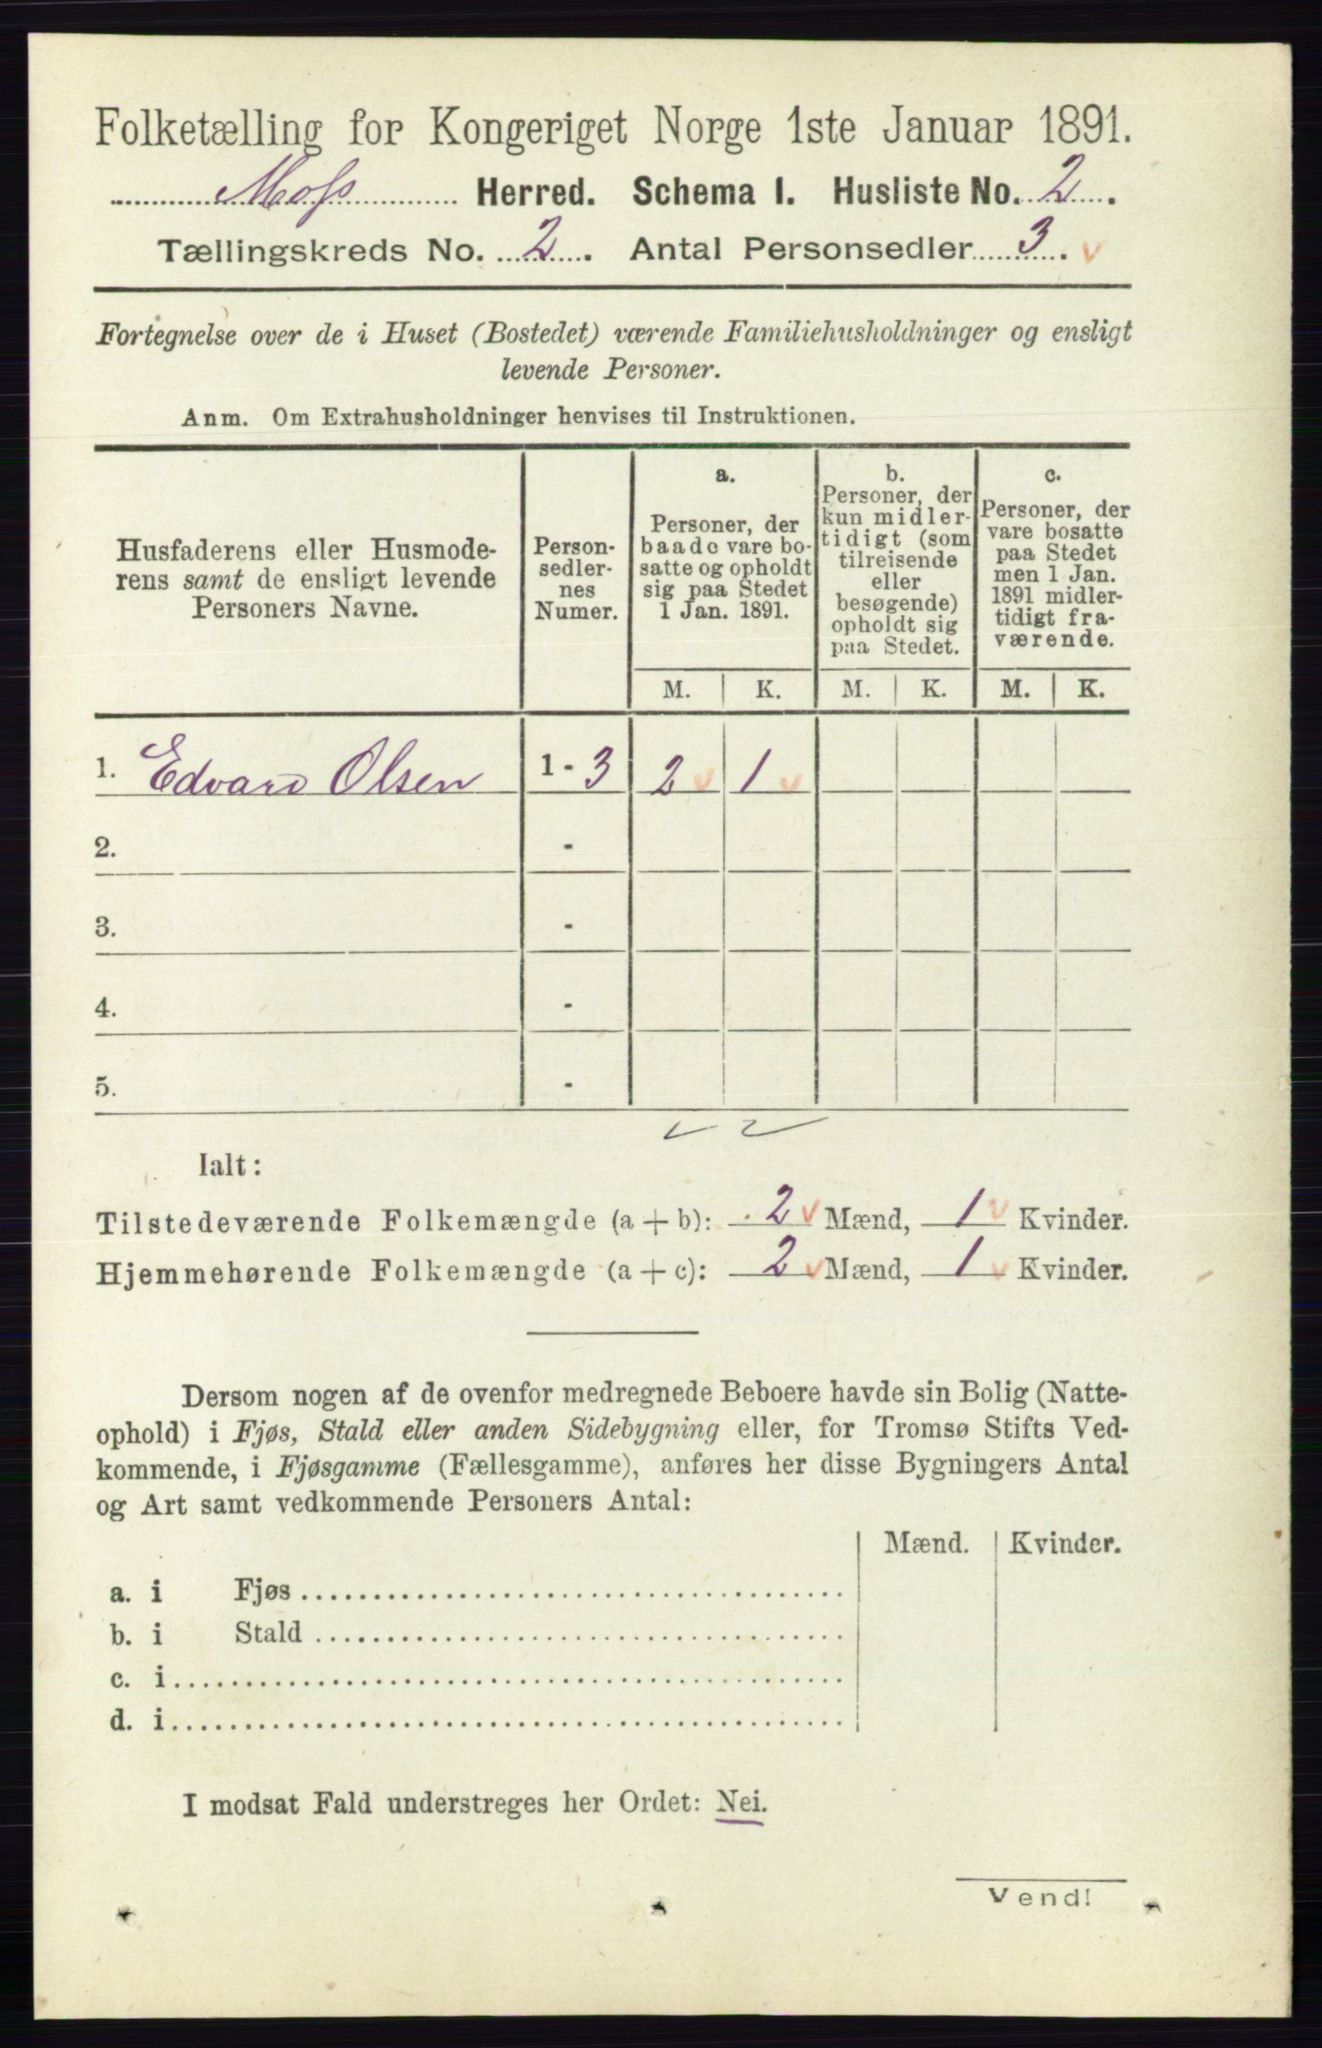 Folketælling for Kongeriget Norge 1ste Januar 1891.
Moss Herred. Schema I. Husliste No. 2.
Tællingskreds No. 2. Antal Personsedler 3. v
Fortegnelse over de i Huset (Bostedet) værende Familiehusholdninger og ensligt
levende Personer.
Anm. Om Extrahusholdninger henvises til Instruktionen.
Husfaderens eller Husmode-
rens samt de ensligt levende
Personers Navne.
Person-
sedler-
nes
Numer.
a.
Personer, der
baade vare bo-
satte og opholdt
sig paa Stedet
1 Jan. 1891.
b.
Personer, der
kun midler-
tidigt (som
tilreisende
eller
besøgende)
opholdt sig
paa Stedet.
c.
Personer, der
vare bosatte
paa Stedet
men 1 Jan.
1891 midler-
tidigt fra-
værende.
M. K. M. K. M. K.
1. Edvard Olsen 1 - 3 2 v 1 v
2. -
3. -
4. -
5. -
Ialt:
Tilstedeværende Folkemængde (a + b): 2 v Mænd, 1 v Kvinder.
Hjemmehørende Folkemængde (a + c): 2 v Mænd, 1 v Kvinder.
Dersom nogen af de ovenfor medregnede Beboere havde sin Bolig (Natte-
ophold) i Fjøs, Stald eller anden Sidebygning eller, for Tromsø Stifts Ved-
kommende, i Fjøsgamme (Fællesgamme), anføres her disse Bygningers Antal
og Art samt vedkommende Personers Antal:
Mænd. Kvinder.
a. i Fjøs
b. i Stald
c. i
d. i
I modsat Fald understreges her Ordet: Nei.
Vend!